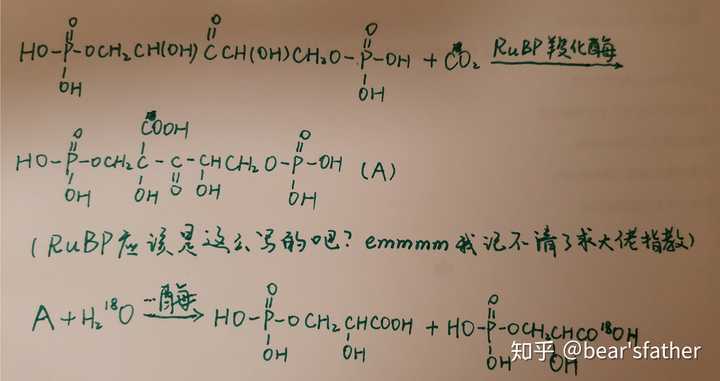 O O
HO-P-OCH₂CH(OH)CCH(OH)CH₂O-P-OH + CO₂ RuBP羧化酶
OH OH
COOH
O O
HO-P-OCH₂C-C-CHCH₂O-P-OH (A)
OH OH O OH OH
(RuBP应该是这么写的吧？emmmm我记不清了求大佬指教)
O O
A+H₂¹⁸O …酶 HO-P-OCH₂CHCOOH + HO-P-OCH₂CHCO¹⁸OH
OH OH OH OH
知乎 @bear'sfather